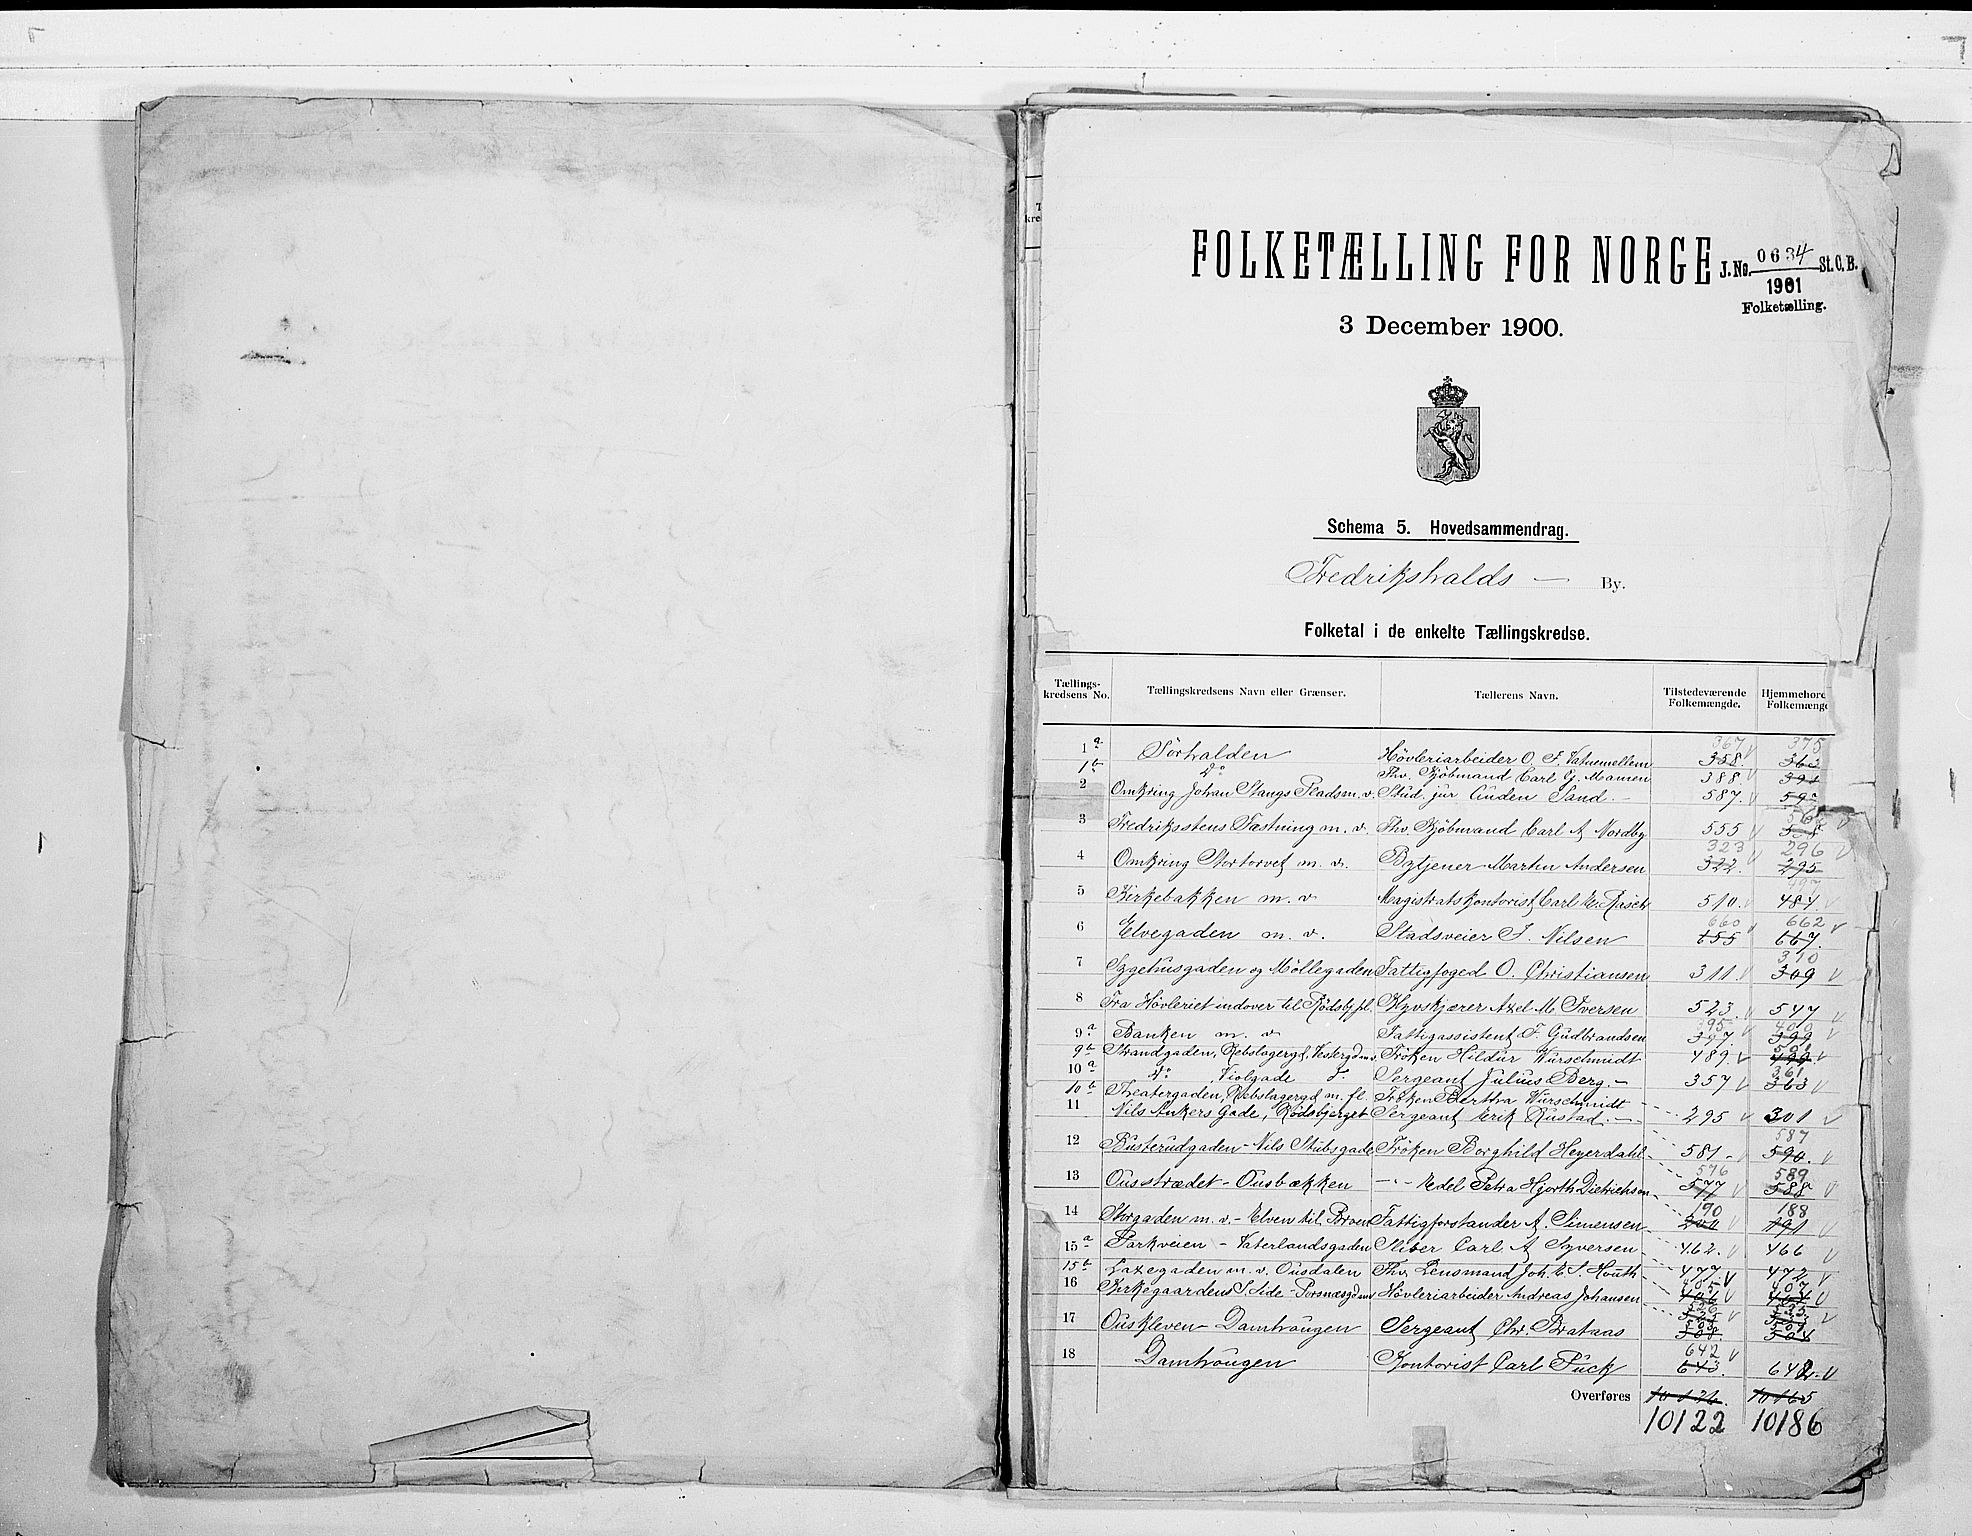 FOLKETÆLLING FOR NORGE
J. No. 0634 St. C. B.
1901
Folketælling.
3 December 1900.
Schema 5. Hovedsammendrag.
Fredrikshalds — By.
Folketal i de enkelte Tællingskredse.
Tællings-kredsens No. Tællingskredsens Navn eller Grænser. Tællerens Navn. Tilstedeværende Folkemængde. Hjemmehøre Folkemængde
1a Sørhalden Hövleriarbeider O. F. Vatnemellem 367 358 375 363
1b Do Thv. Kjöbmand Carl G. Mamen 388 391
2 Omkring Johan Stangs Plads m. v. Stud. jur Auden Sand. — 587. 592
3 Fredriksstens Fæstning m. v. Thv. Kjöbmand Carl A. Nordby 555 558
4 Omkring Stortorvet m. v. Bytjener Martin Andersen 323 322. 296 295
5 Kirkebakken m. v Magistratskontorist Carl E. Rasch 510. 484
6 Elvegaden m. v. Stadsveier J. Nilsen 660 655 662 667.
7 Sygehusgaden og Möllegaden Fattigfoged O. Christiansen 311 310 309
8 Fra Hövleriet indover til Rödsbj.pl. Hyvskjærer Axel M. Iversen 523. 547
9a Banken m. v Fattigassistent F. Gudbrandsen 395 397. 400 399
9b Strandgaden, Rebslagergd, Vestergd m.v. Fröken Hildur Würschmidt 489. 501 499
10a Do, Violgade Sergeant Julius Berg. — 357 361 363
10b Theatergaden, Rebslagergd m. fl. Fröken Berthra Würschmidt
11 Nils Ankers Gade, Rødsbjerget Sergeant Erik Rustad. — 295 301
12 Busterudgaden - Nils Stubsgade Fröken Borghild Heyerdahl 581 - 587 590.
13 Ousstrædet - Ousbækken —"— Edel Petra Hjorth Dietrichson 576 577 589 588
14 Storgaden m. v. - Elven til Broen Fattigforstander A. Simensen 190 201 188 191
15a Parkveien - Vaterlandsgaden Sliber Carl A Syversen 462. 466
15b Laxegaden m. v. Ousdalen Thv. Lensmand Joh. E. S. Houth 477 472
16 Kirkegaardens S. Side - Porsnæsgd m Hövleriarbeider Andreas Johansen 405 406 407 404
17 Ouskleven - Damhaugen Sergeant Chr. Brataas 503 508 501 504
18 Damhaugen Kontorist Carl Puck 642 643. 642.
Overføres 10126. 10165
10122 10186